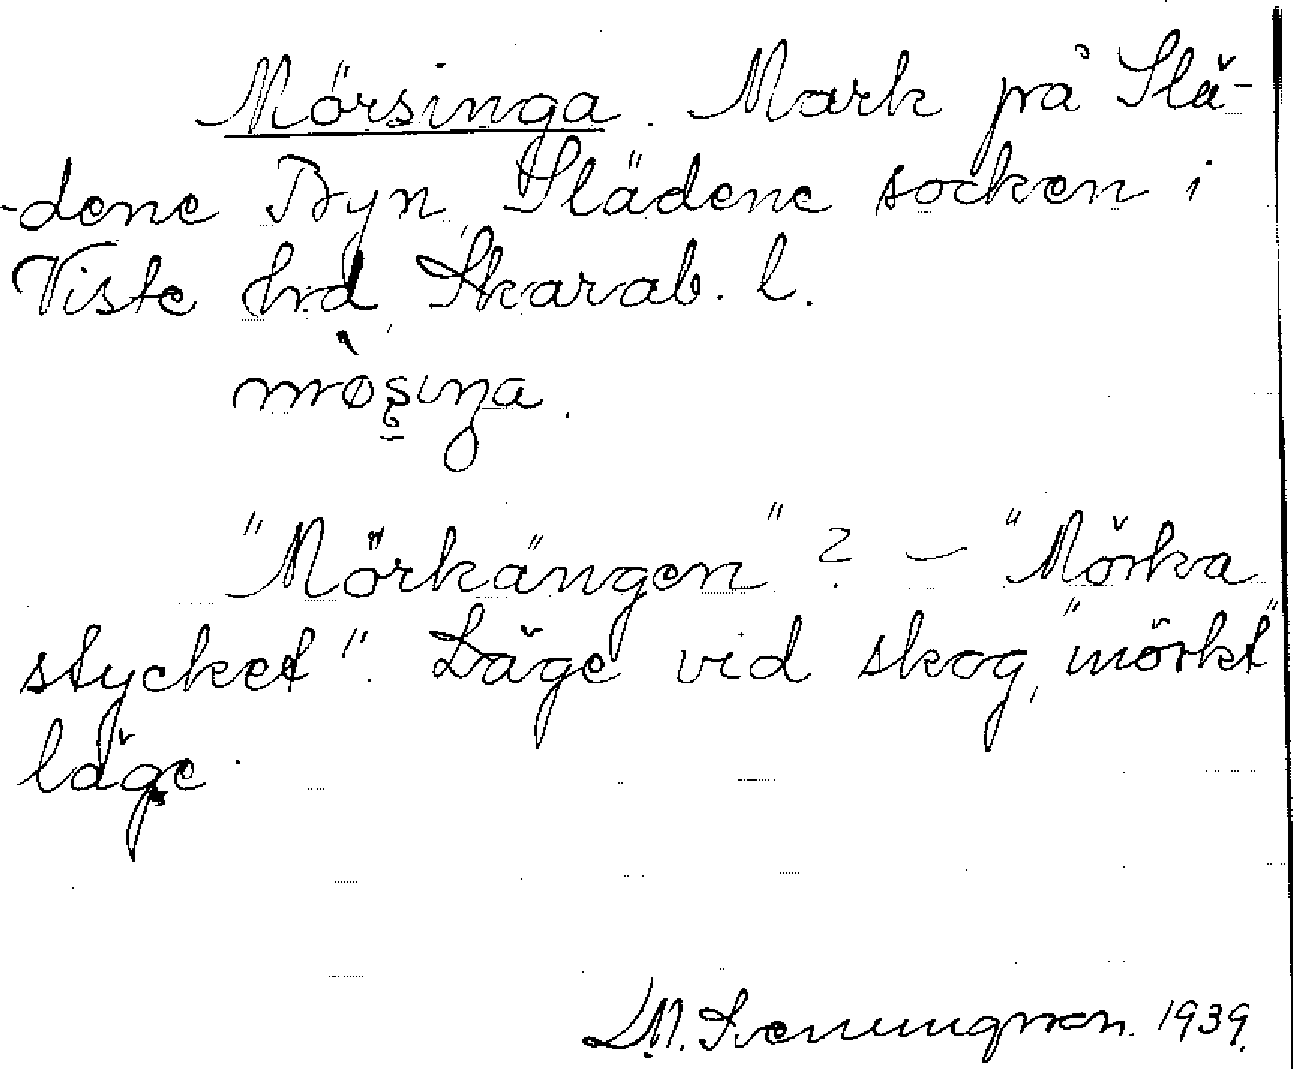 Mörsinga. Mark på Slä-
-dene Byn, Slädene socken i
Viste hrd, Skarab. l.
"Mörkängen"? – "Mörka
stycket". Läge vid skog, "mörkt"
läge.
1939.